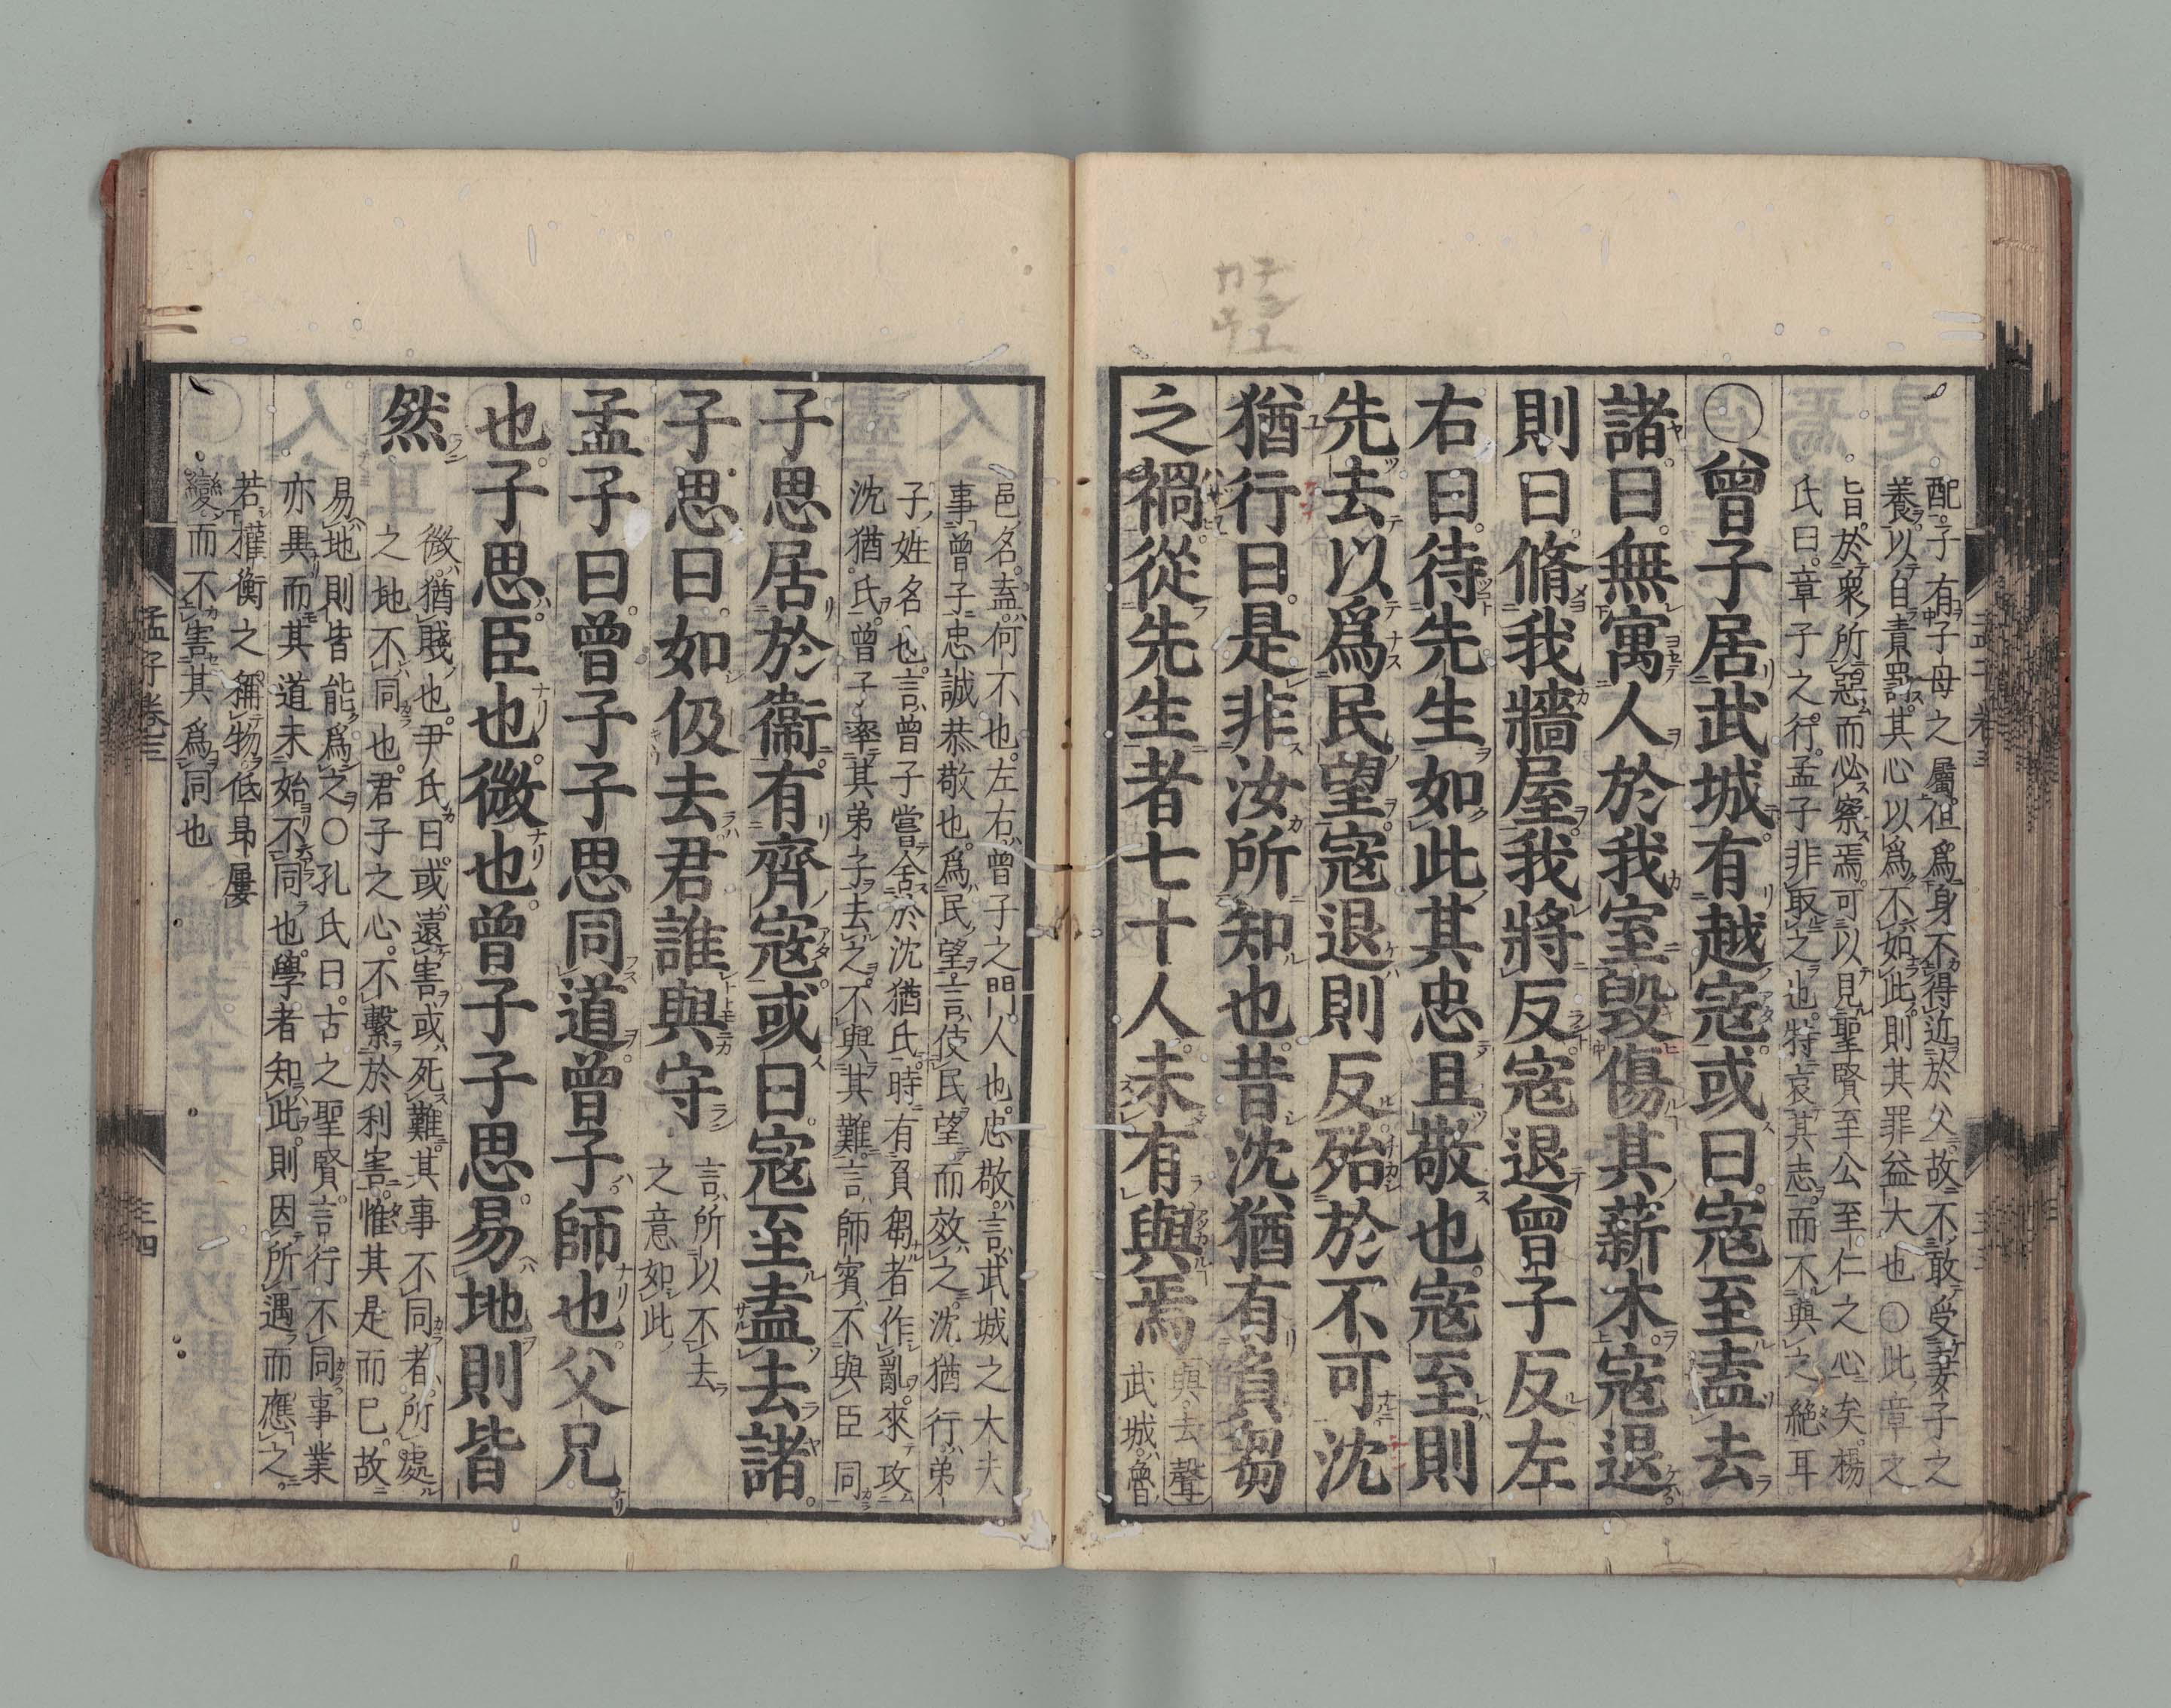 配子有子母之屬但爲身不得近於父故不敢受妻子之
養以自責罰其心以爲不如此則其罪益大也○此章之
旨於衆所惡而必察焉可以見聖賢至公至仁之心矣楊
氏曰章子之行孟子非取之也特哀其志而不與之絶耳
○曾子居武城有越寇或曰寇至盍去
諸曰無寓人於我室毀傷其薪木寇退
則曰脩我牆屋我將反寇退曾子反左
右曰待先生如此其忠且敬也寇至則
先去以爲民望寇退則反殆於不可沈
猶行曰是非汝所知也昔沈猶有負芻
之禍從先生者七十人未有與焉
與去聲
武城魯
邑名盍何不也左右曾子之門人也忠敬言武城之大夫
事曾子忠誠恭敬也爲民望言使民望而效之沈猶行弟
子姓名也言曾子嘗舍於沈猶氏時有負芻者作亂來攻
沈猶氏曾子率其弟子去之不與其難言師賓不與臣同
子思居於衞有齊寇或曰寇至盍去諸
子思曰如伋去君誰與守
言所以不去
之意如此
孟子曰曾子子思同道曾子師也父兄
也子思臣也微也曾子子思易地則皆
然
微猶賤也尹氏曰或遠害或死難其事不同者所處
之地不同也君子之心不繫於利害惟其是而已故
易地則皆能爲之○孔氏曰古之聖賢言行不同事業
亦異而其道未始不同也學者知此則因所遇而應之
若權衡之稱物低昻屢
變而不害其爲同也
孟子卷三
三四